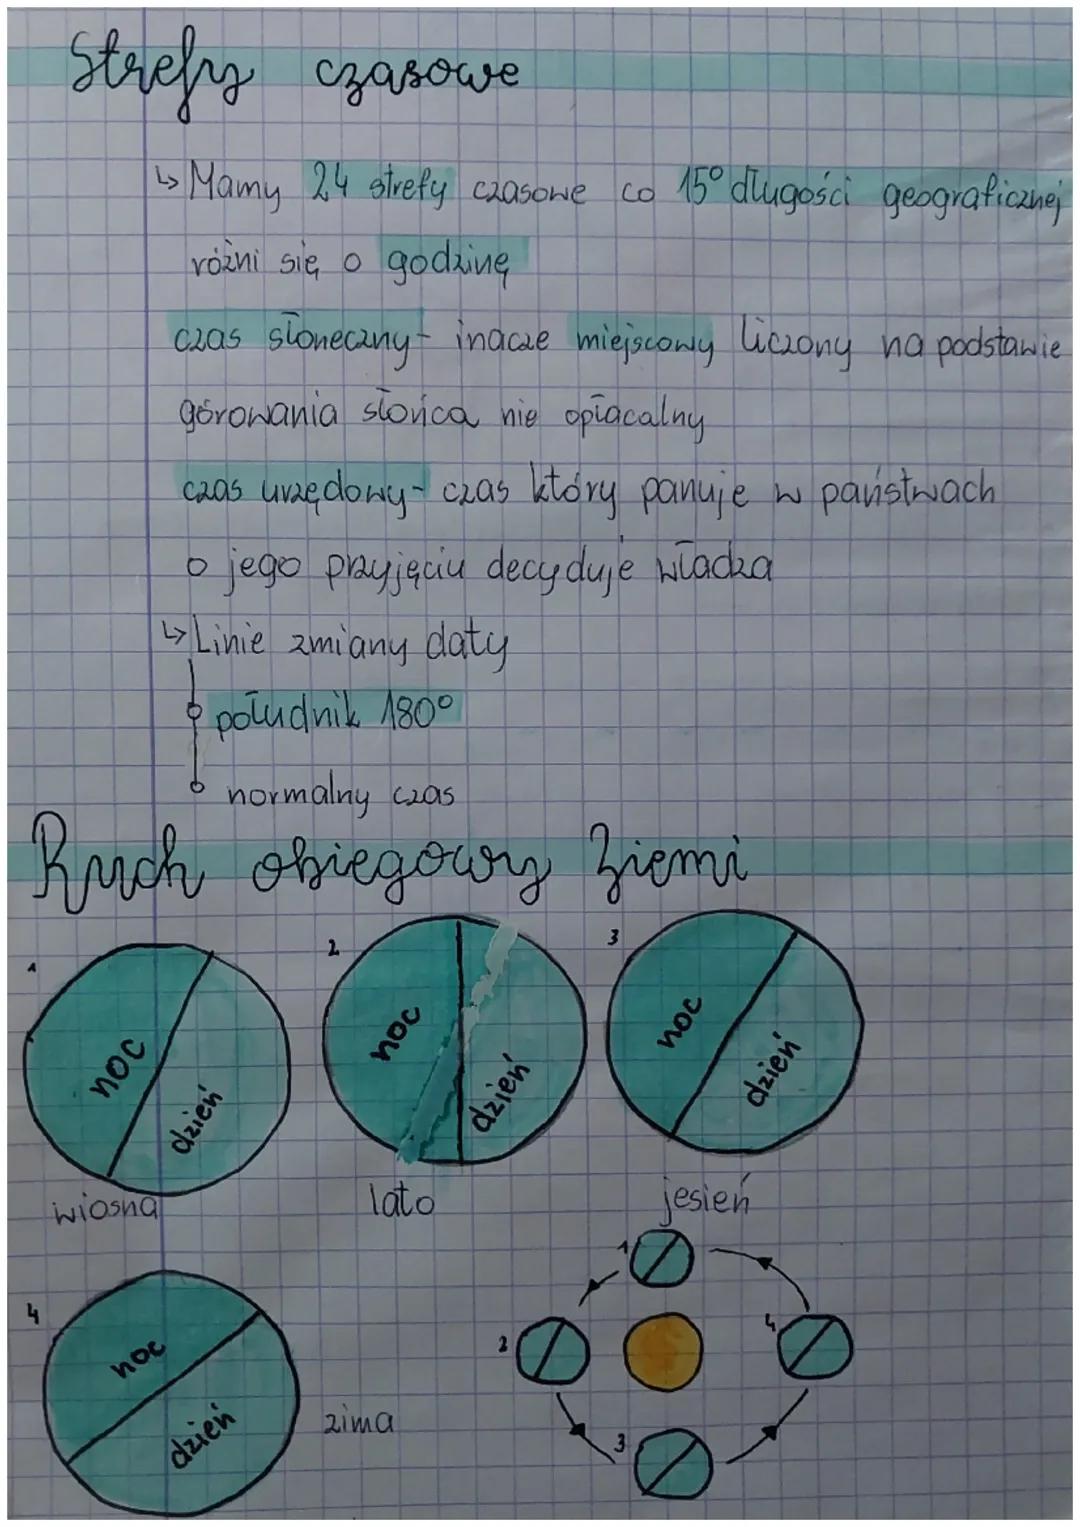 Strefy czasowe
↳ Mamy 24 strefy czasowe co 15° długości geograficznej
różni się o godzinę
czas słoneczny - inacze miejscowy liczony na podstawie
górowania słońca nie opłacalny
czas urzędowy - czas który panuje w państwach
o jego przyjęciu decyduje władza
↳ Linie zmiany daty
południk 180°
normalny czas
Ruch obiegowy Ziemi
1
noc
dzień
wiosna
2
noc
dzień
lato
3
noc
dzień
jesień
4
noc
dzień
zima
1
2
3
4